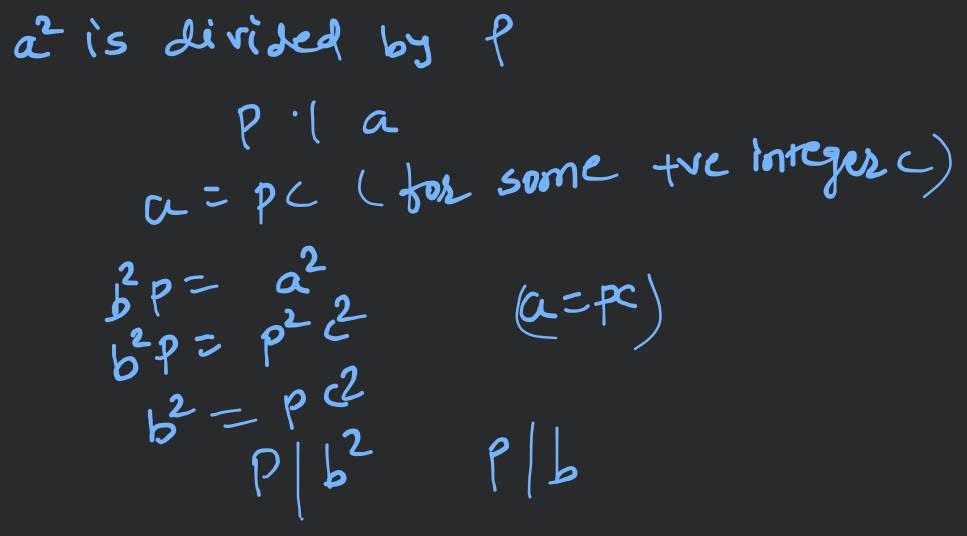 a² is divided by p
p | a
a = pc (for some +ve integer c)
b²p = a²
b²p = p²c² (a = pc)
b² = pc²
p|b² p|b